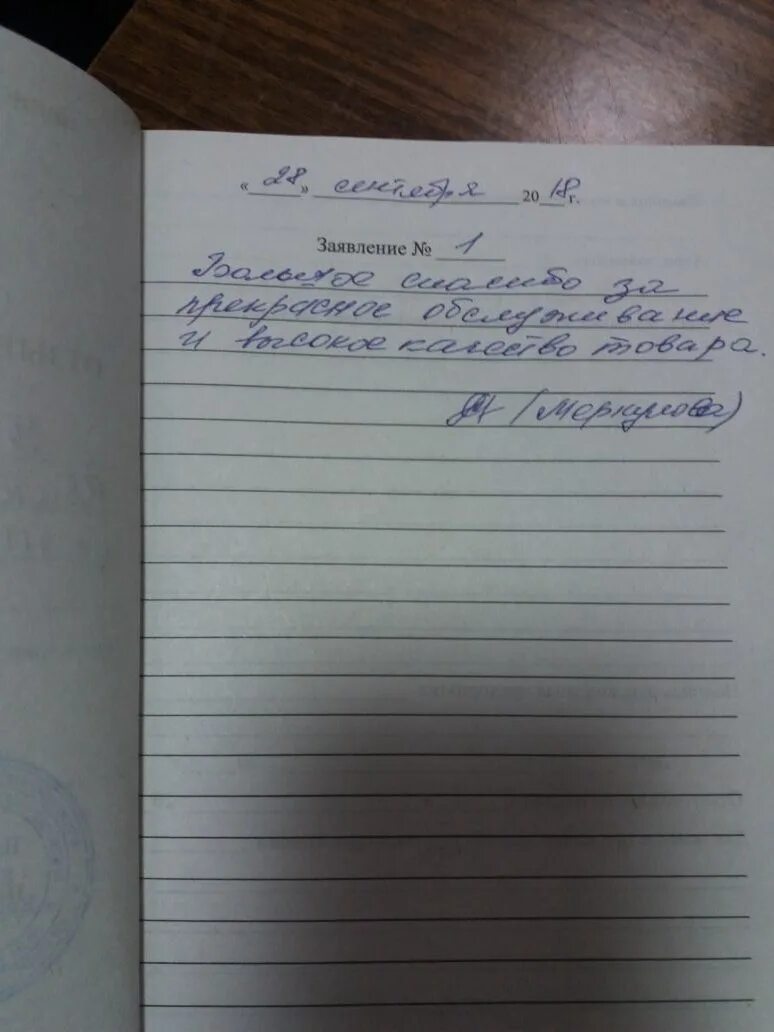 «28» сентября 2018 г.
Заявление № 1
Большое спасибо за
прекрасное обслуживание
и высокое качество товара.
(Меркулова)